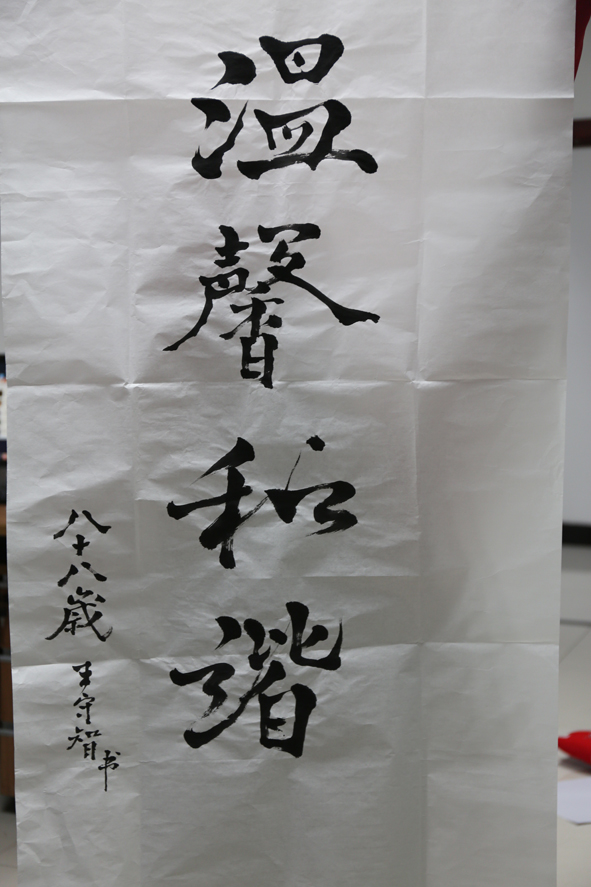 温馨和谐
八十八岁
王守智书